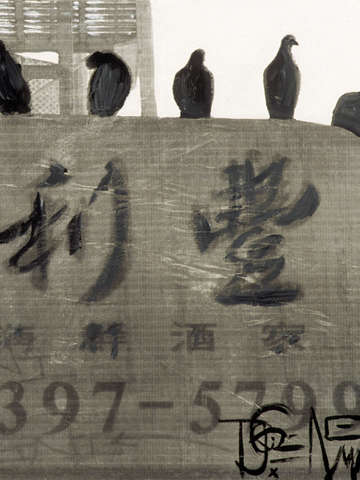 利豐
海鮮酒家
397-5799